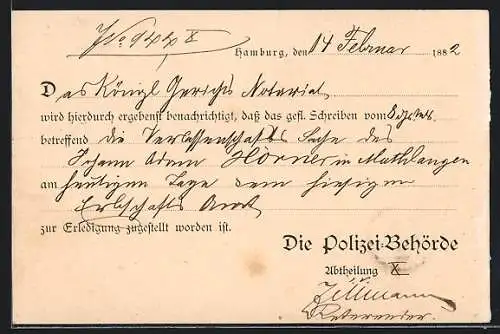 No 944 X
Hamburg, den 14 Februar 1882
Das Königl Gerichts Notariat
wird hierdurch ergebenst benachrichtigt, daß das gefl. Schreiben vom
betreffend die Verlassenschafts Sache des
Johann Adam Hörner in Muthlangen
am heutigen Tage dem hiesigen
Erbschafts Amt
zur Erledigung zugestellt worden ist.
Die Polizei-Behörde
Abtheilung X
Referendar